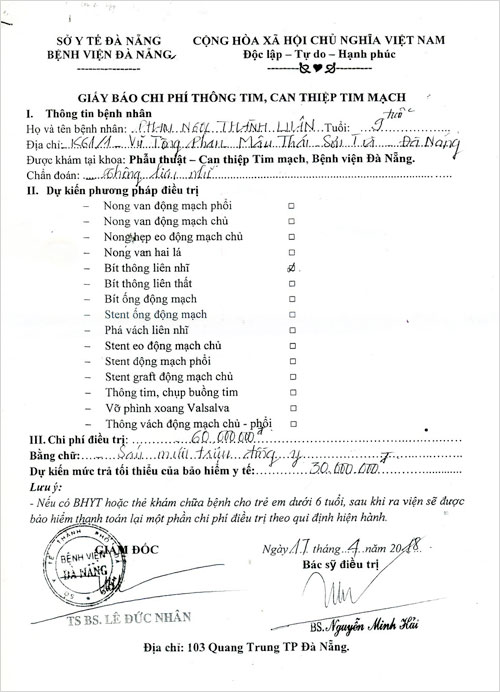 SỞ Y TẾ ĐÀ NẴNG
BỆNH VIỆN ĐÀ NẴNG
CỘNG HÒA XÃ HỘI CHỦ NGHĨA VIỆT NAM
Độc lập – Tự do – Hạnh phúc
GIẤY BÁO CHI PHÍ THÔNG TIM, CAN THIỆP TIM MẠCH
I. Thông tin bệnh nhân
Họ và tên bệnh nhân: PHAN NGỌ THÀNH LUÂN Tuổi: 9 tuổi
Địa chỉ: K61/1 - Vũ Tông Phan Mân Thái Sơn Trà Đà Nẵng
Được khám tại khoa: Phẫu thuật – Can thiệp Tim mạch, Bệnh viện Đà Nẵng.
Chẩn đoán: Thông liên nhĩ
II. Dự kiến phương pháp điều trị
– Nong van động mạch phổi □
– Nong van động mạch chủ □
– Nong hẹp eo động mạch chủ □
– Nong van hai lá □
– Bít thông liên nhĩ ☑
– Bít thông liên thất □
– Bít ống động mạch □
– Stent ống động mạch □
– Phá vách liên nhĩ □
– Stent eo động mạch chủ □
– Stent động mạch phổi □
– Stent graft động mạch chủ □
– Thông tim, chụp buồng tim □
– Vỡ phình xoang Valsalva □
– Thông vách động mạch chủ - phổi □
III. Chi phí điều trị: 60.000.000đ
Bằng chữ: Sáu mươi triệu đồng y
Dự kiến mức trả tối thiểu của bảo hiểm y tế: 30.000.000đ
Lưu ý:
- Nếu có BHYT hoặc thẻ khám chữa bệnh cho trẻ em dưới 6 tuổi, sau khi ra viện sẽ được
bảo hiểm thanh toán lại một phần chi phí điều trị theo qui định hiện hành.
GIÁM ĐỐC
BỆNH VIỆN
ĐÀ NẴNG
TS BS. LÊ ĐỨC NHÂN
Ngày 17 tháng 4 năm 2018.
Bác sỹ điều trị
BS. Nguyễn Minh Hải
Địa chỉ: 103 Quang Trung TP Đà Nẵng.